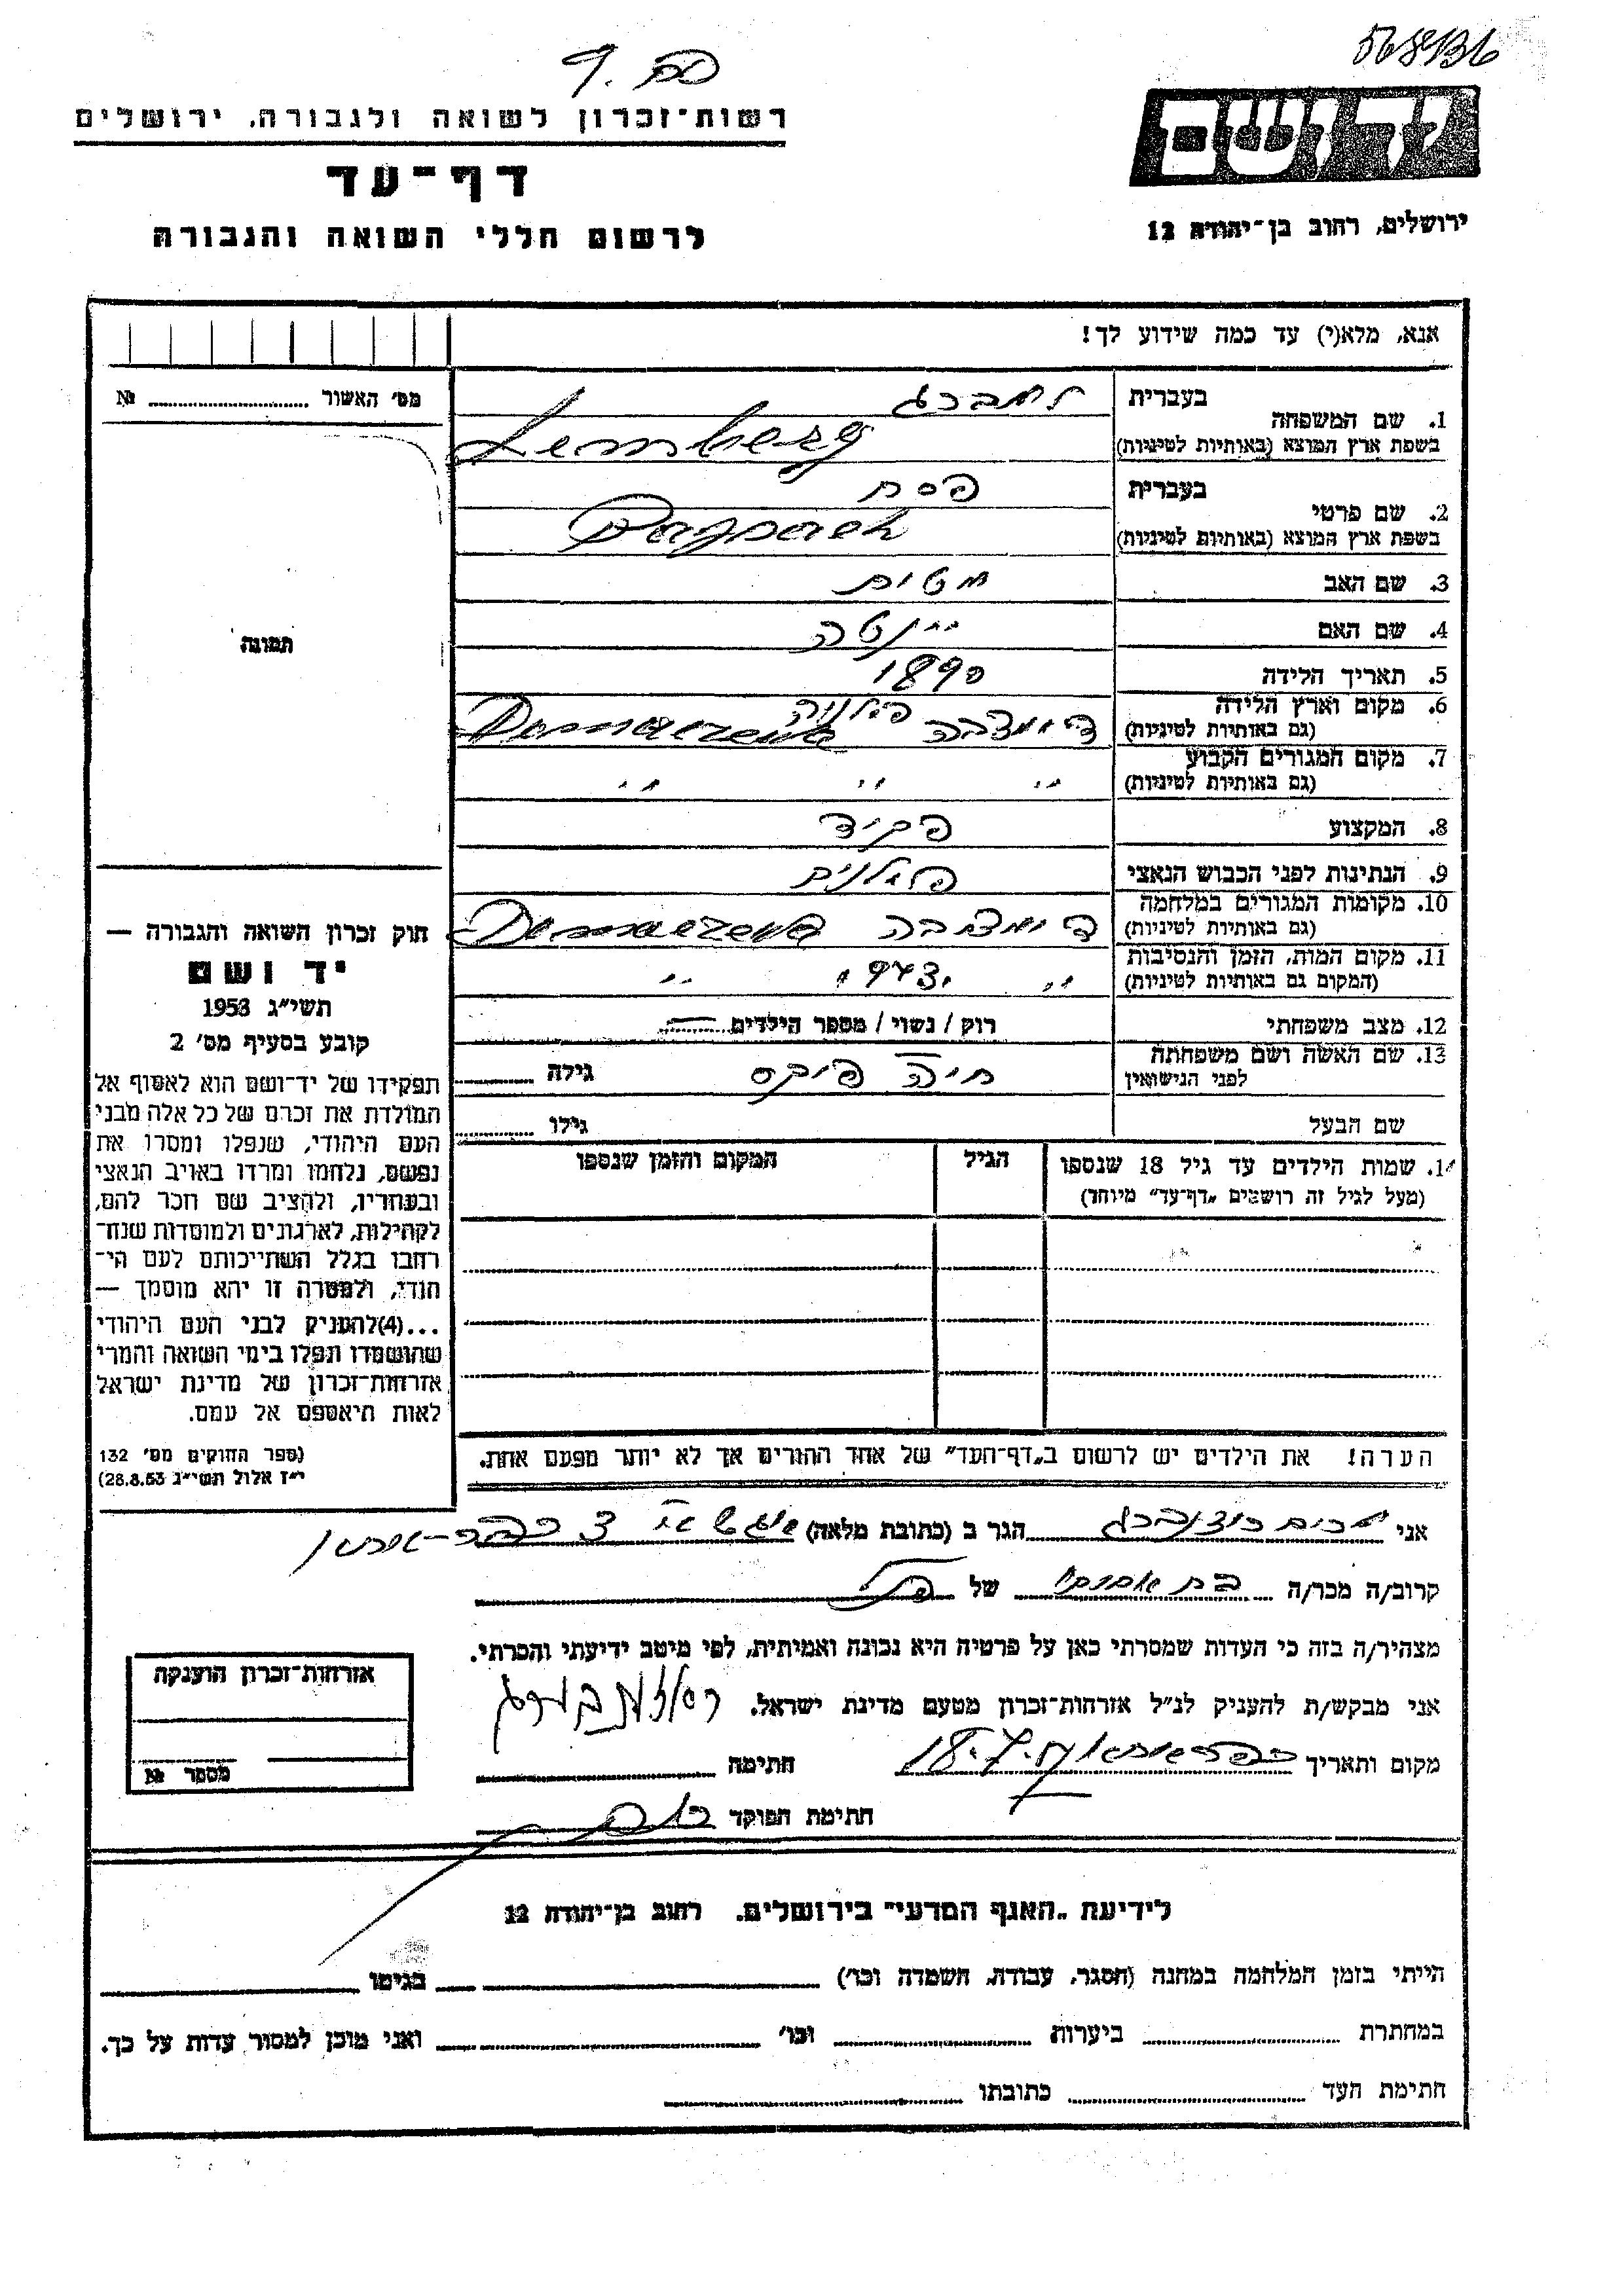 רשות־זכרון לשואה ולגבורה, ירושלים
דף־עד
לרשום חללי השואה והגבורה
ירושלים, רחוב בן־יהודה 12
אנא, מלא(י) עד כמה שידוע לך!
מס׳ האשור № 
1. שם המשפחה
בעברית למברג
בשפת ארץ המוצא (באותיות לטיניות) Lemberg
2. שם פרטי
בעברית פסח
בשפת ארץ המוצא (באותיות לטיניות)
3. שם האב
4. שם האם יינטה
5. תאריך הלידה 1890
6. מקום וארץ הלידה
(גם באותיות לטיניות)
7. מקום המגורים הקבוע
(גם באותיות לטיניות) " " "
8. המקצוע פקיד
9. הנתינות לפני הכבוש הנאצי
10. מקומות המגורים במלחמה
(גם באותיות לטיניות)
11. מקום המות, הזמן והנסיבות
(המקום גם באותיות לטיניות) " 1943 "
12. מצב משפחתי רוק / נשוי / מספר הילדים
13. שם האשה ושם משפחתה
לפני הנישואין חיה פוקס גילה
שם הבעל גילו
14. שמות הילדים עד גיל 18 שנספו
(מעל לגיל זה רושמים „דף־עד״ מיוחד)
הגיל
המקום והזמן שנספו
הערה! את הילדים יש לרשום ב„דף־העד״ של אחד ההורים אך לא יותר מפעם אחת.
תמונה
חוק זכרון השואה והגבורה —
יד ושם
תשי״ג 1953
קובע בסעיף מס׳ 2
תפקידו של יד־ושם הוא לאסוף אל
המולדת את זכרם של כל אלה מבני
העם היהודי, שנפלו ומסרו את
נפשם, נלחמו ומרדו באויב הנאצי
ובעוזריו, ולהציב שם וזכר להם,
לקהילות, לארגונים ולמוסדות שנח־
רבו בגלל השתייכותם לעם הי־
הודי, ולמטרה זו יהא מוסמך —
...(4)להעניק לבני העם היהודי
שהושמדו ונפלו בימי השואה והמרי
אזרחות־זכרון של מדינת ישראל
לאות היאספם אל עמם.
(ספר החוקים מס׳ 132
י״ז אלול תשי״ג 28.8.53)
אני הגר ב (כתובת מלאה)
קרוב/ה מכר/ה של
מצהיר/ה בזה כי העדות שמסרתי כאן על פרטיה היא נכונה ואמיתית, לפי מיטב ידיעתי והכרתי.
אני מבקש/ת להעניק לנ״ל אזרחות־זכרון מטעם מדינת ישראל.
מקום ותאריך חתימה
חתימת הפוקד
אזרחות־זכרון הוענקה
מספר №
לידיעת „האגף המדעי״ בירושלים. רחוב בן־יהודה 12
הייתי בזמן המלחמה במחנה (הסגר, עבודה, השמדה וכו׳) בגיטו
במחתרת ביערות וכו׳ ואני מוכן למסור עדות על כך.
חתימת העד כתובתו